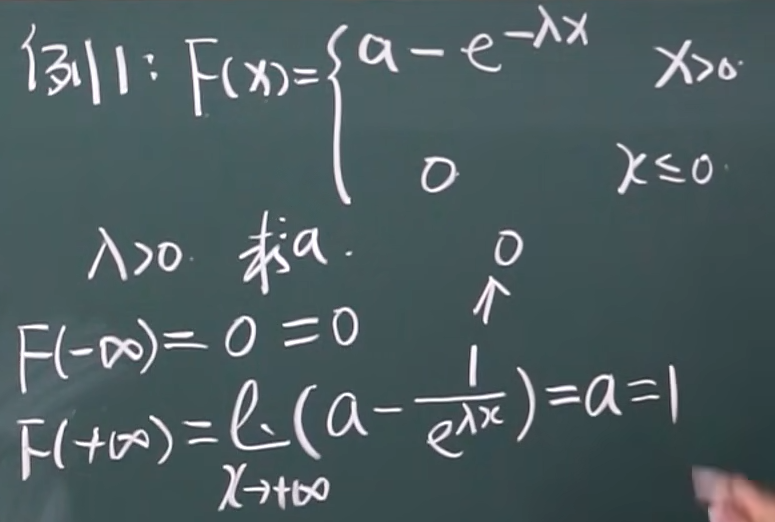 例1: F(x)={ a - e^{-λx} x>0.
0 x≤0.
λ>0. 求a.
0
↑
F(-∞)=0=0
F(+∞)=l.(a - 1/e^{λx})=a=1
x→+∞